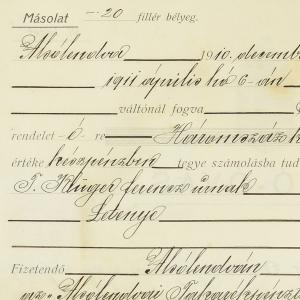 Másolat -·20 fillér bélyeg.
Alsólendva 1910. decemb
1911 április hó 6-án
váltónál fogva
rendelet-ő re Háromszáz k
értéke készpénzben tegye számolásba tud
T. Klüger Ferencz úrnak
Letenye
Fizetendő Alsólendván
az Alsólendvai Takarékpénz